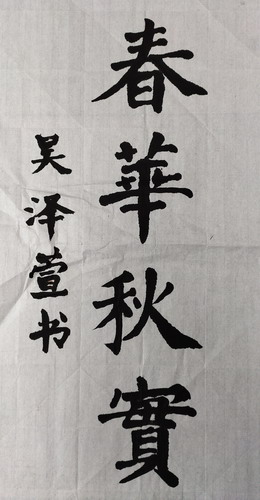 春華秋實
吴泽萱书